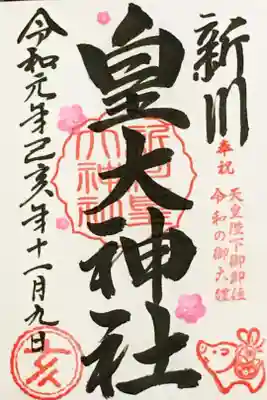 新川
奉祝
天皇陛下御即位
令和の御大礼
皇大神社
令和元年己亥年十一月九日